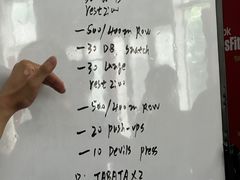 rest 2:00
— 500/400m Row
— 30 DB Snatch
— 30 Lunge
rest 2:00
— 500/400m Row
— 20 push-ups
— 10 Devils press
D: TABATA X2